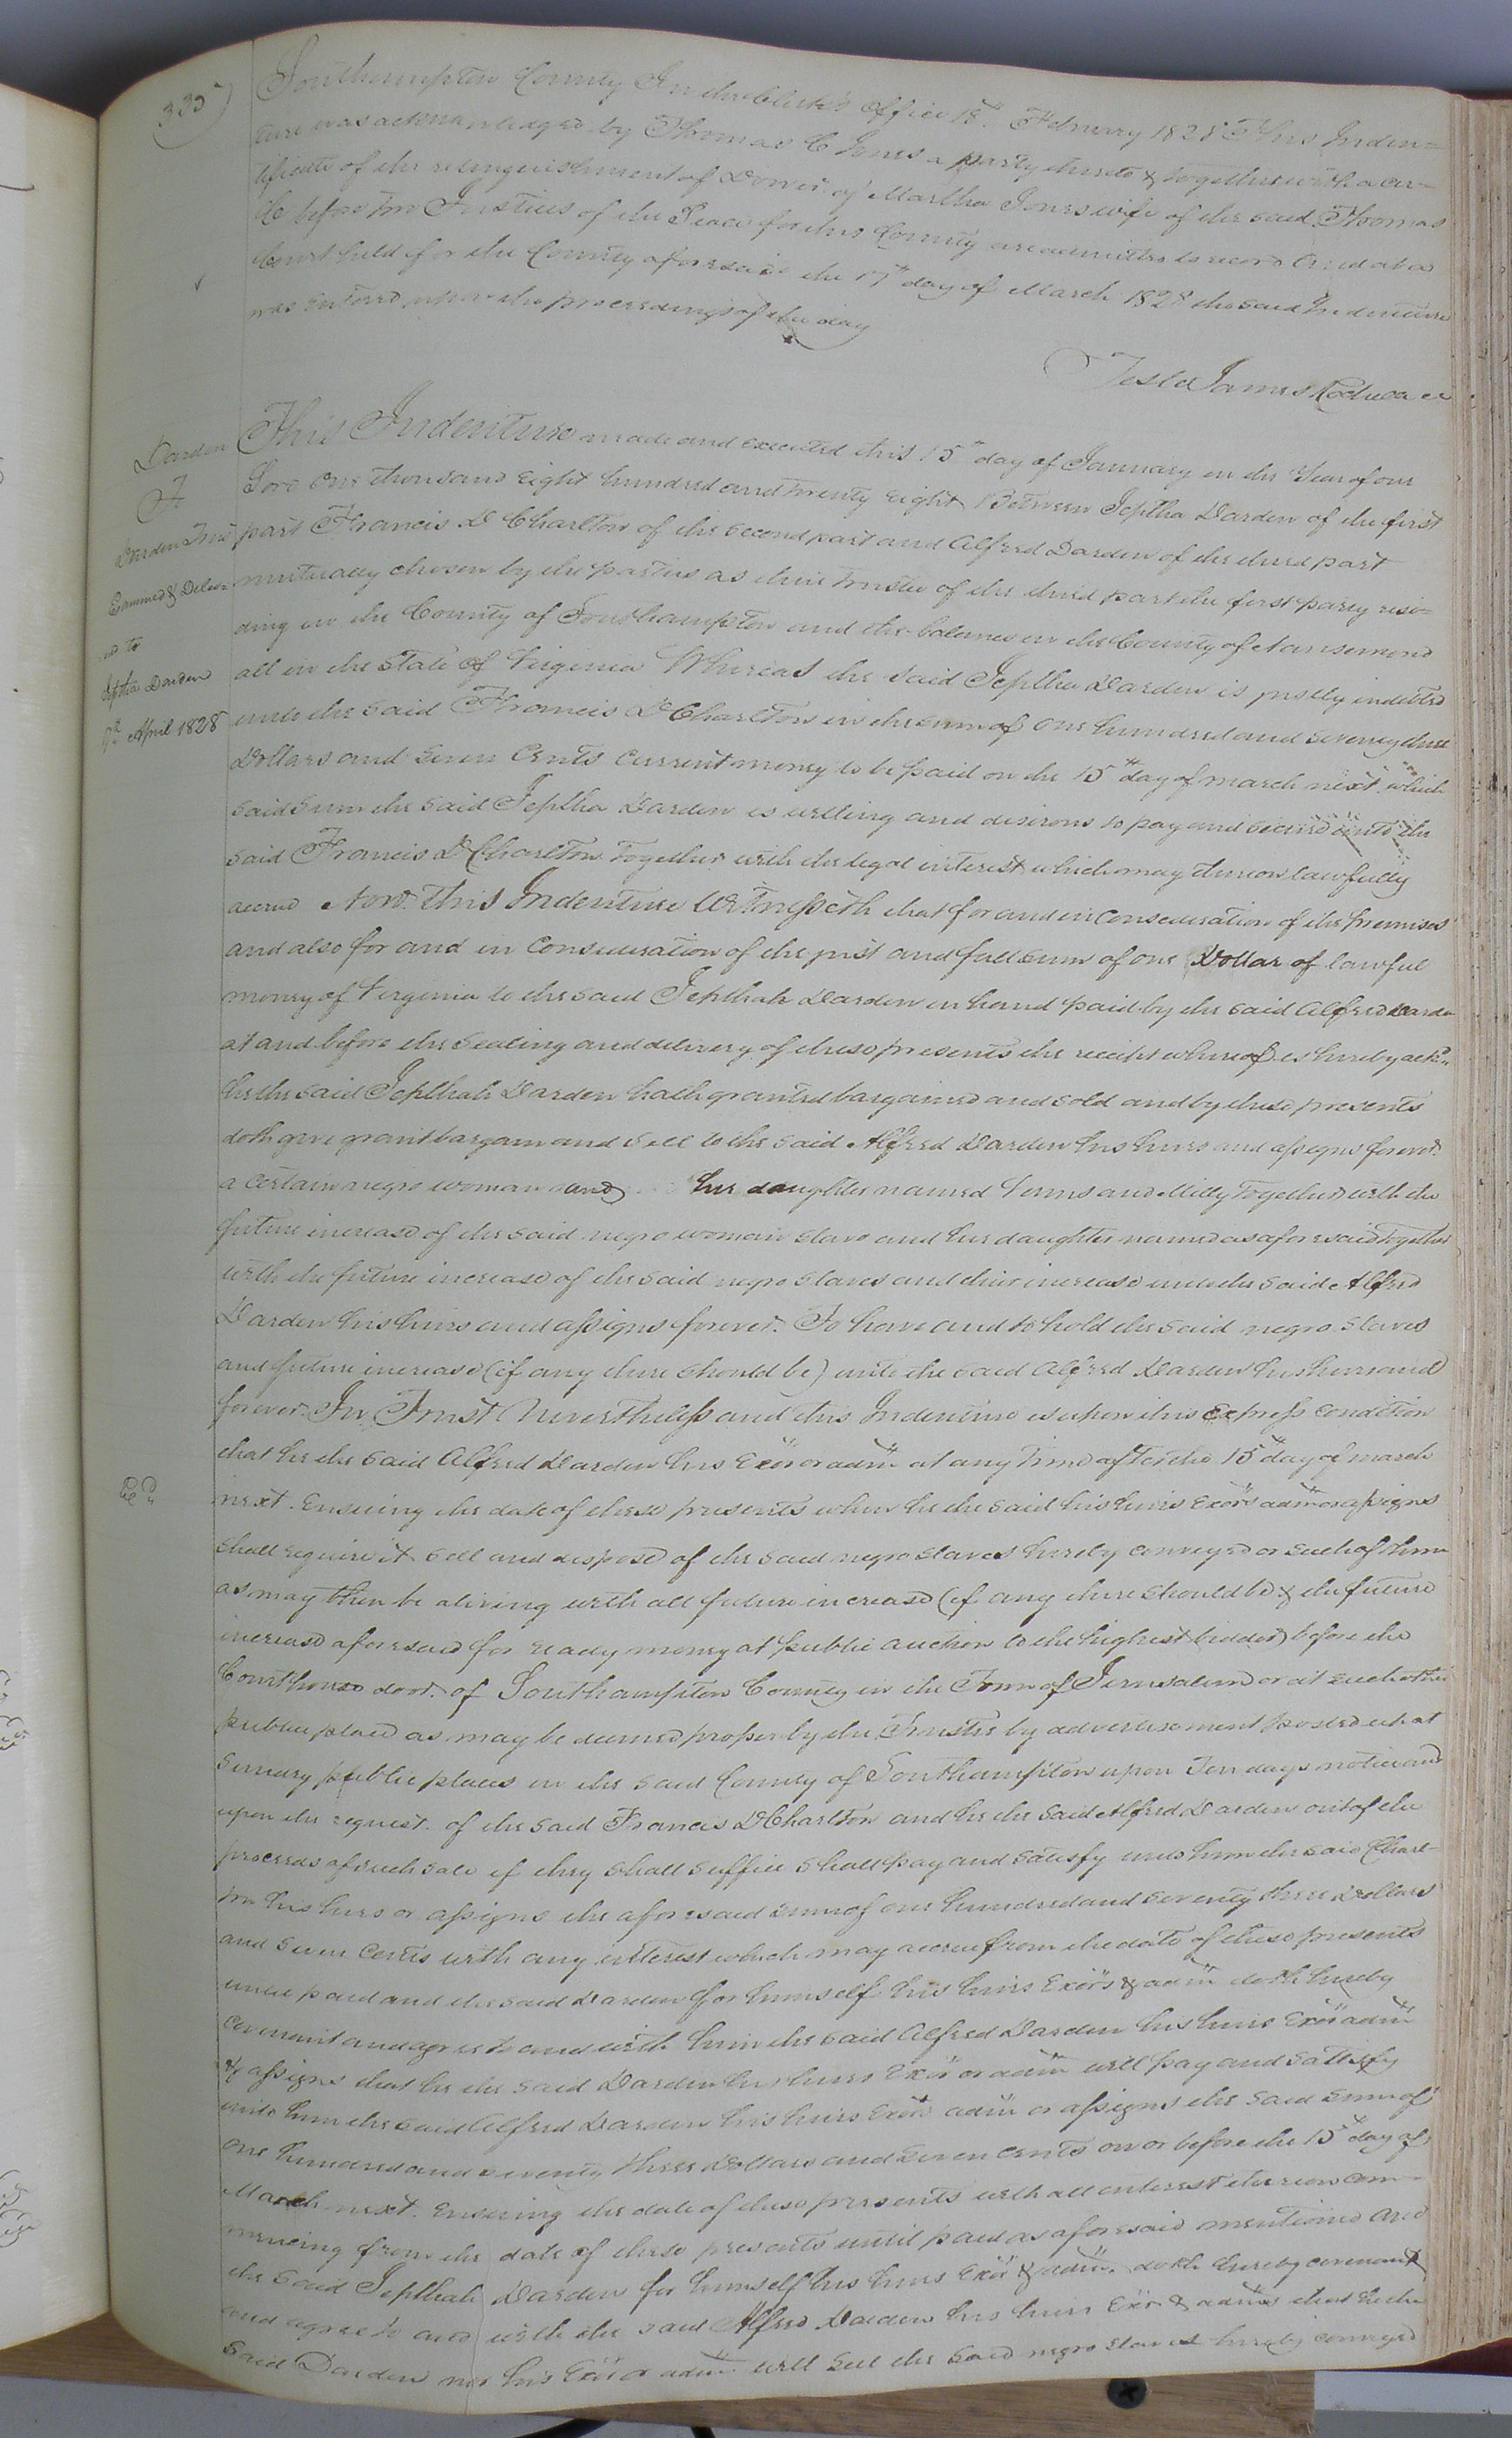 335)
Southampton County In the Clerk's Office 18th. February 1828 This Inden=
ture was acknowledged by Thomas C Jones a party thereto & together with a cer=
tificate of the relinquishment of Dower of Martha Jones wife of the said Thomas
C before two Justices of the Peace for this County are admitted to record And at a
Court held for the County aforesaid the 17th day of March 1828 the said Indenture
was entered upon the proceedings of the day
Teste James Rochelle cc
Darden
To
Darden Trus
Examined & Deliv=
ed to
Jeptha Darden
9th April 1828
This Indenture made and executed this 15th day of January in the Year of our
Lord One thousand Eight hundred and twenty Eight Between Jeptha Darden of the first
part Francis D Charlton of the second part and Alfred Darden of the third part
mutually chosen by the parties as their trustee of the third part the first party resi=
ding in the County of Southampton and the balance in the County of Nansemond
all in the State of Virginia Whereas the said Jeptha Darden is justly indebted
unto the said Francis D Charlton in the sum of One hundred and seventy three
Dollars and Seven Cents Current money to be paid on the 15th day of march next which
said sum the said Jeptha Darden is willing and desirous to pay and secure unto the
said Francis D Charlton together with the legal interest which may thereon lawfully
accrue Now This Indenture Witnesseth that for and in Consideration of the premises
and also for and in Consideration of the just and full sum of one Dollar of lawful
money of Virginia to the said Jepthah Darden in hand paid by the said Alfred Darden
at and before the Sealing and delivery of these presents the receipt whereof is hereby ackd
he the said Jepthah Darden hath granted bargained and sold and by these presents
doth give grant bargain and sell to the said Alfred Darden his heirs and assigns forever.
a certain negro woman and her daughter named Venus and Milly together with the
future increase of the said negro woman slave and her daughter named as aforesaid together
with the future increase of the said negro slaves and their increase unto the said Alfred
Darden his heirs and assigns forever. To have and to hold the said negro slaves
and future increase (if any there should be) unto the said Alfred Darden his heirs and
forever. In Trust Nevertheless and this Indenture is upon this Express condition
that he the said Alfred Darden his Exōr or adm̄ at any time after the 15th day of march
next. Ensuing the date of these presents when he the said his heirs Exōrs adm̄ or assigns
shall require it sell and dispose of the said negro slaves hereby conveyed or such of them
as may then be aliving with all future increase (if any there should be & the future
increase aforesaid for ready money at public auction to the highest bidder) before the
Courthouse door. of Southampton County in the Town of Jerusalem or at such other
public place as may be deemed proper by the Trustee by advertisement posted up at
Sundry public places in the said County of Southampton upon Ten days notice and
upon the request. of the said Francis D Charlton and he the said Alfred Darden out of the
proceeds of such sale if they shall suffice shall pay and satisfy unto him the said Charl=
ton his heirs or assigns the aforesaid sum of one hundred and seventy three Dollars
and seven cents with any interest which may accrue from the date of these presents
until paid and the said Darden for himself his heirs Exōrs & adm̄ doth hereby
covenant and agree to and with him the said Alfred Darden his heirs Exōr adm̄
& assigns that he the said Darden his heirs Exōr or adm̄ will pay and satisfy
unto him the said Alfred Darden his heirs Exōrs adm̄ or assigns the said sum of
One hundred and seventy three Dollars and seven cents on or before the 15th day of
March next. Ensuing the date of these presents with all interest thereon com=
mencing from the date of these presents until paid as aforesaid mentioned And
the said Jepthah Darden for himself his heirs Exōr & adm̄. doth hereby covenant
and agree to and with the said Alfred Darden his heirs Exōr & adm̄s that he the
said Darden nor his Exōr or adm̄ will sell the said negro slaves hereby conveyed